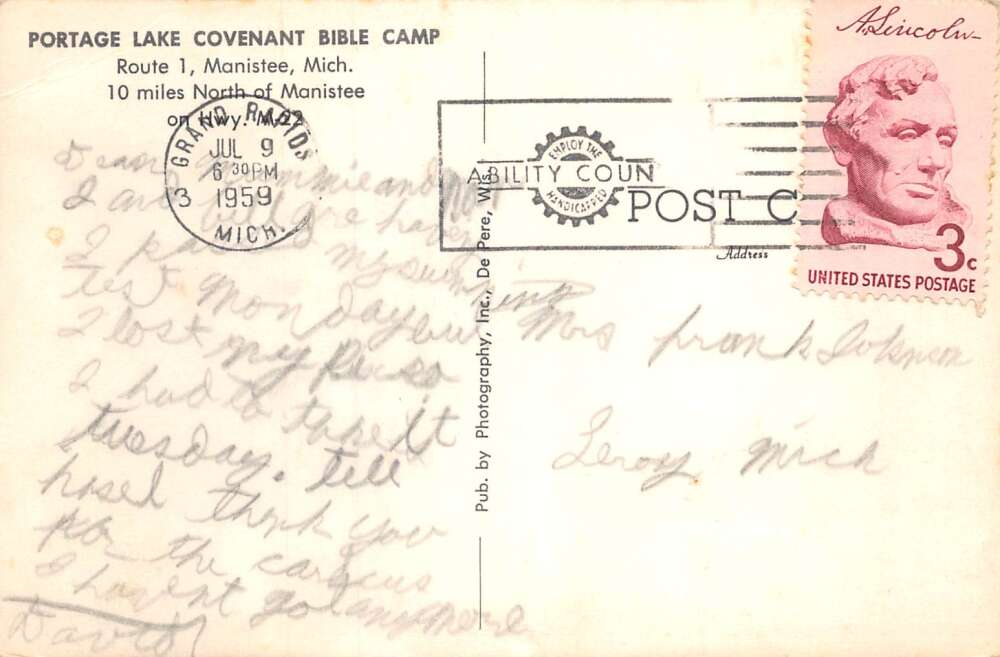 PORTAGE LAKE COVENANT BIBLE CAMP
Route 1, Manistee, Mich.
10 miles North of Manistee
on Hwy. M-22
GRAND RAPIDS
JUL 9
6 30 PM
1959
3
MICH.
EMPLOY THE
ABILITY COUN
HANDICAPPED
POST C
Address
A. Lincoln
3c
UNITED STATES POSTAGE
Pub. by Photography, Inc., De Pere, Wis.
Dear Mommie and
I am
I my swimming
test Monday but
I lost my
I had to take It
tuesday. tell
hazel thank you
for the
I havent got any more
David
Mrs Frank Johnson
Leroy Mich